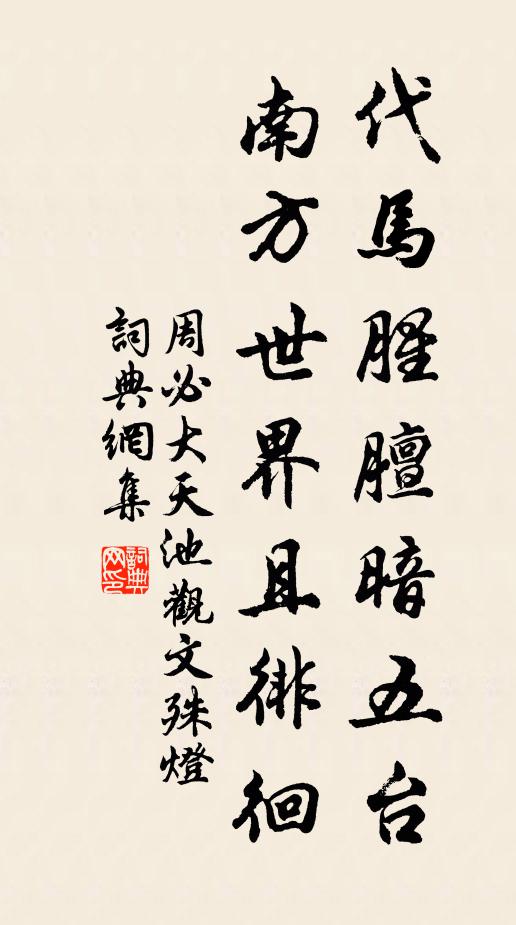 代馬腥膻暗五台
南方世界且徘徊
周必大天池觀文殊燈
詞典網集
詞典网印